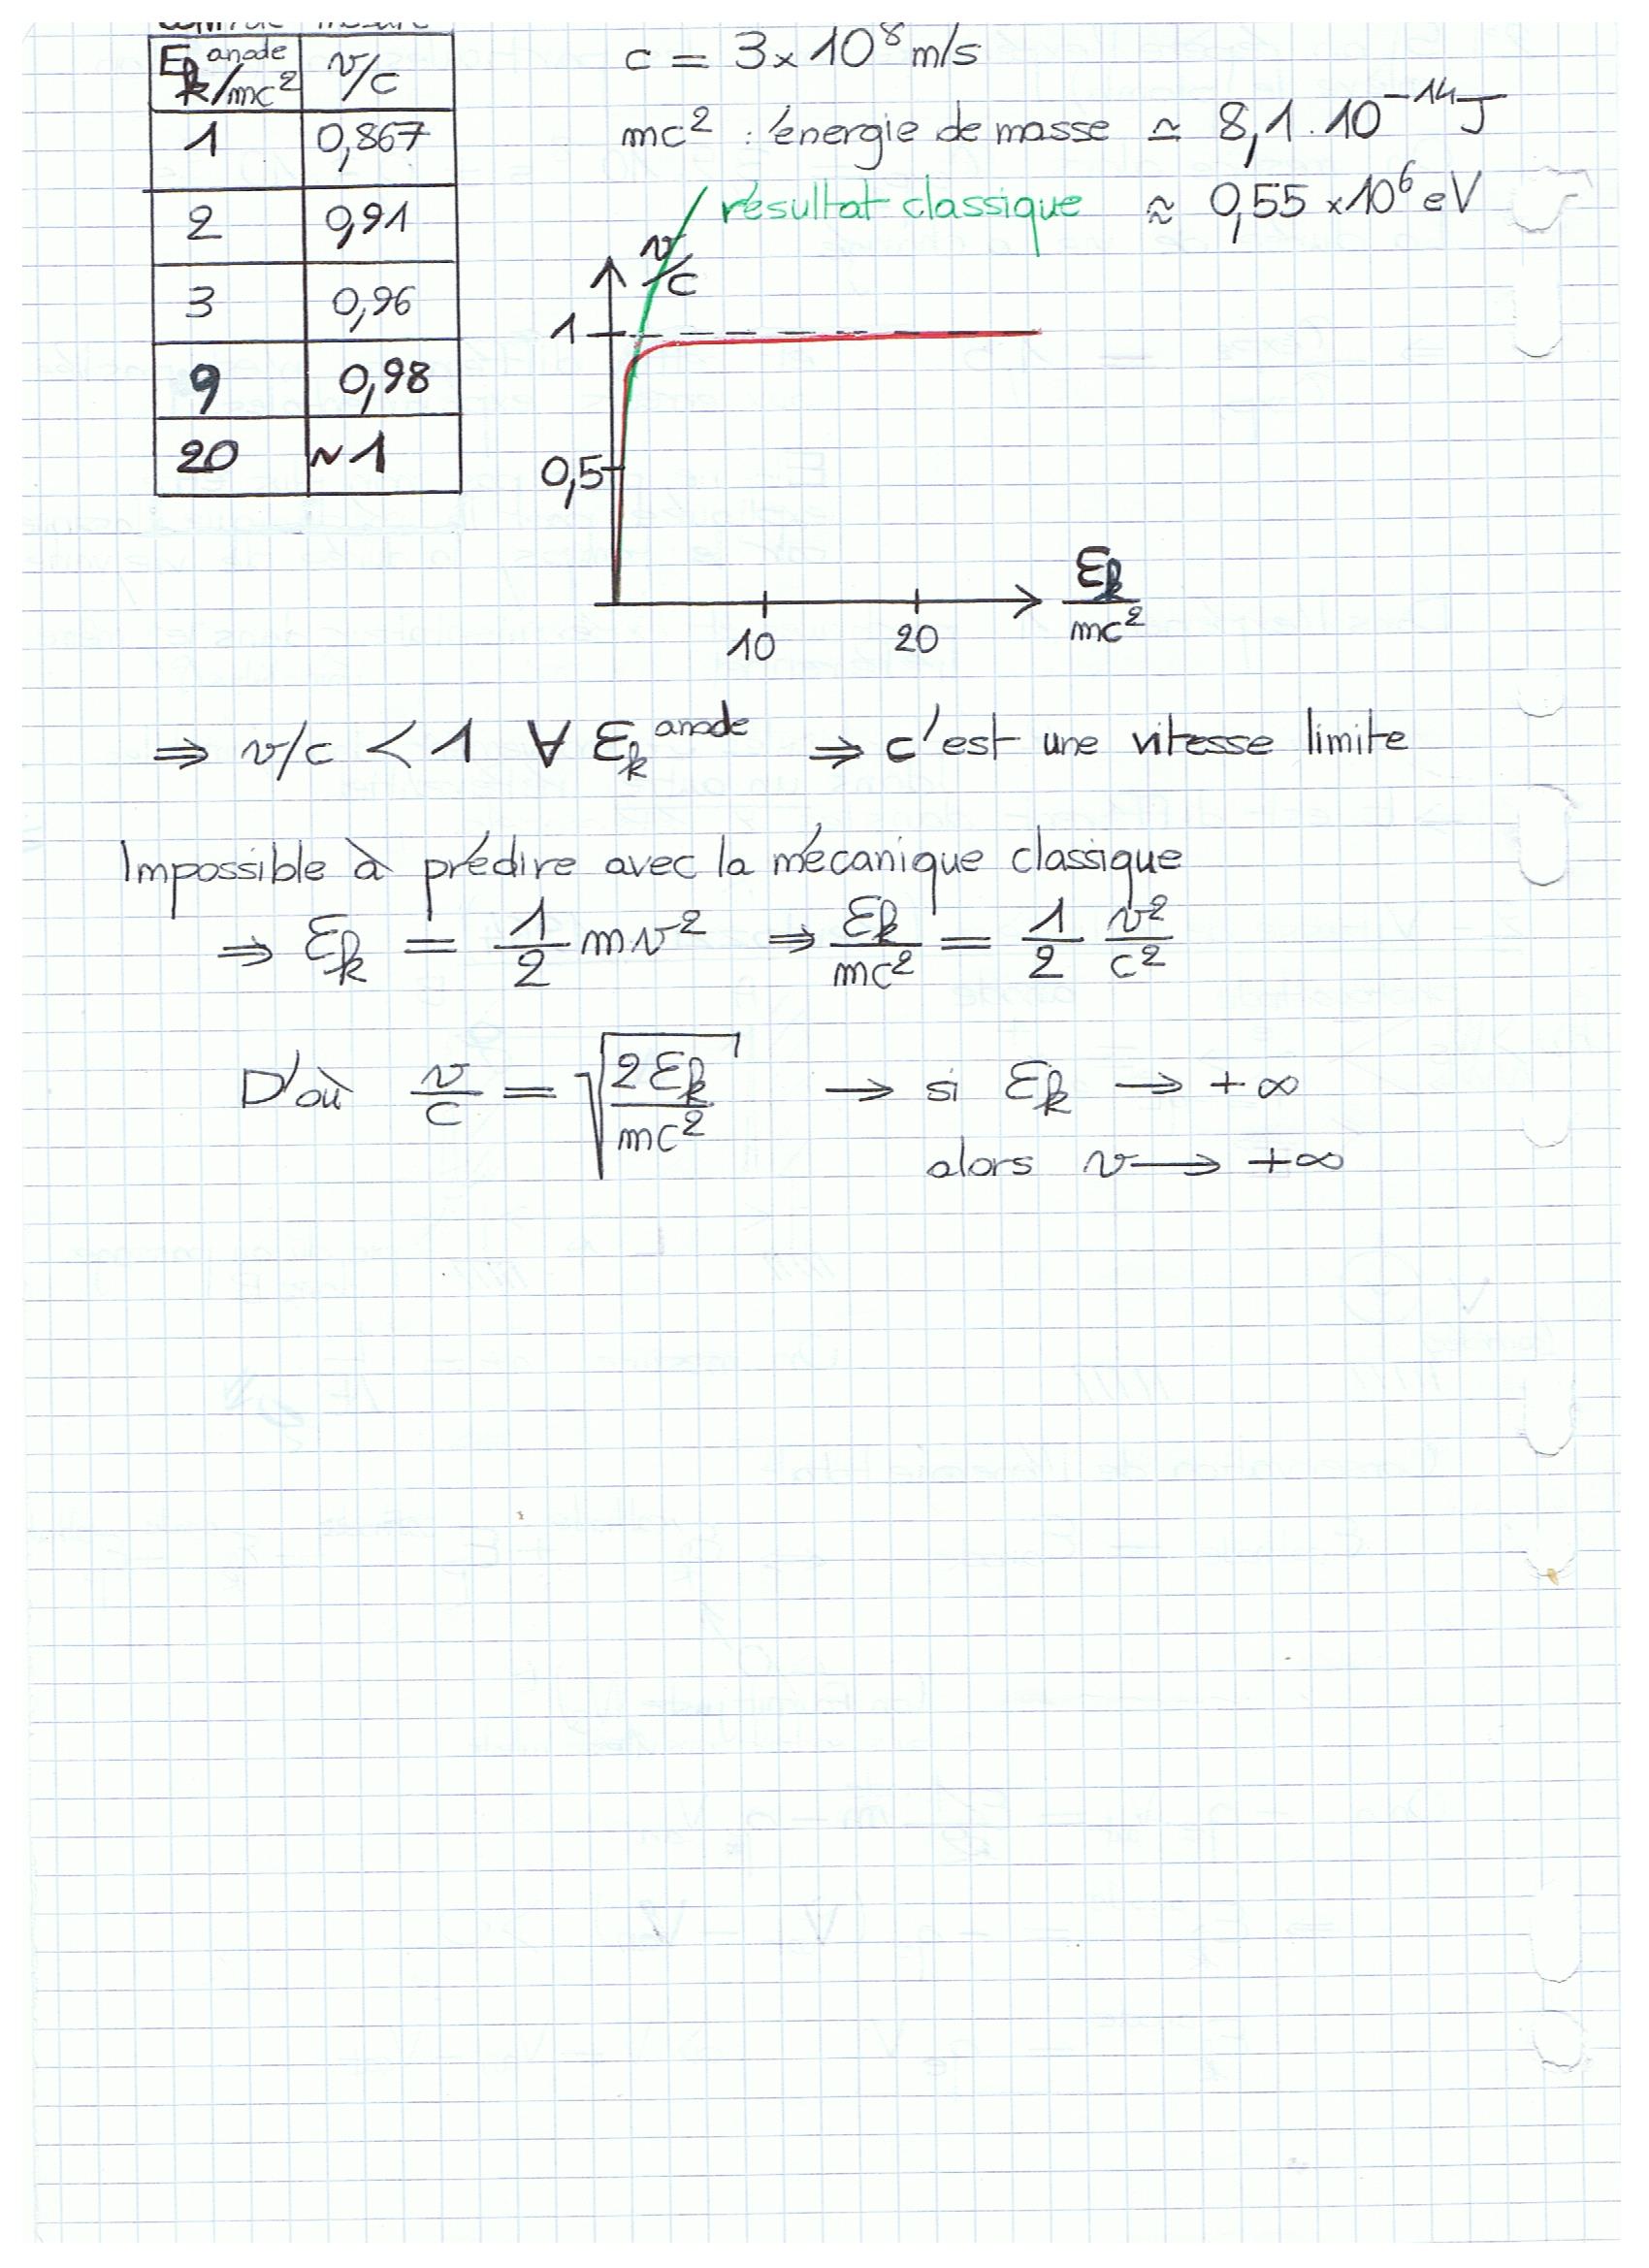 Ek anode/mc² v/c
1 0,867
2 0,91
3 0,96
9 0,98
20 ~1
c = 3×10⁸ m/s
mc² : énergie de masse ≃ 8,1.10⁻¹⁴ J
résultat classique ≈ 0,55 ×10⁶ eV
v/c
1
0,5
10 20
Ek/mc²
⇒ v/c < 1 ∀ Ek anode ⇒ c'est une vitesse limite
Impossible à prédire avec la mécanique classique
⇒ Ek = 1/2 mv² ⇒ Ek/mc² = 1/2 v²/c²
D'où v/c = √(2Ek/mc²) → si Ek → +∞
alors v → +∞